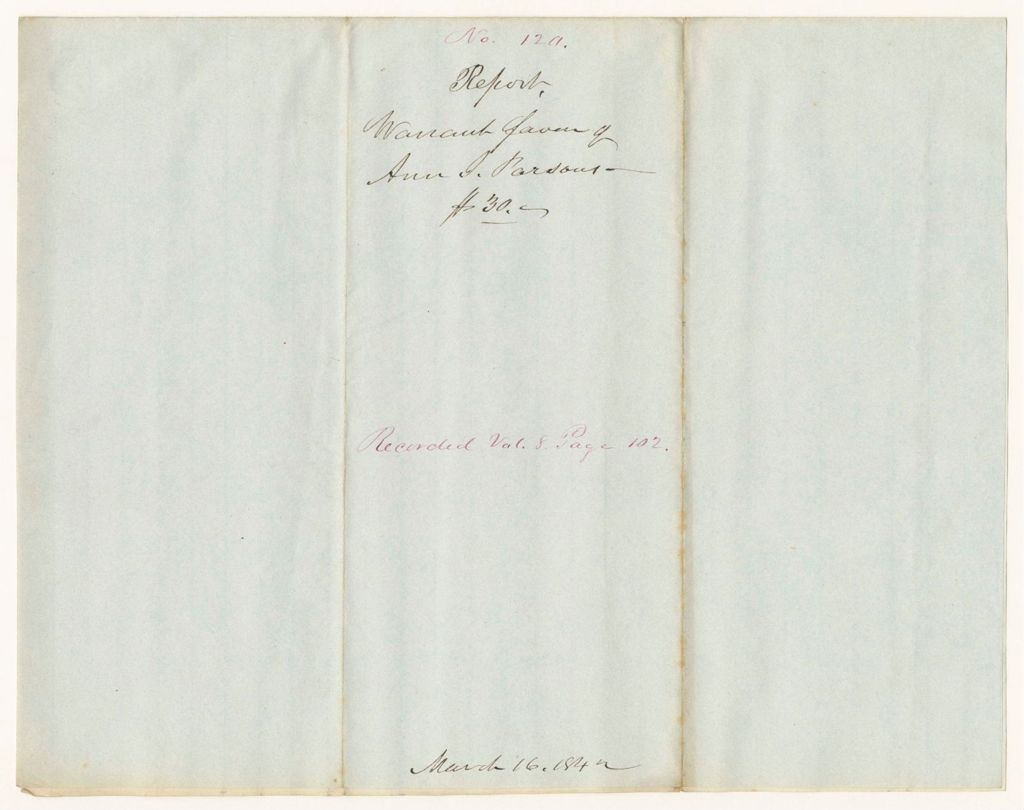 No. 120.
Report,
Warrant favor of
Ann S. Parsons—
$30.
Recorded Vol. 8. Page 102.
March 16. 1842